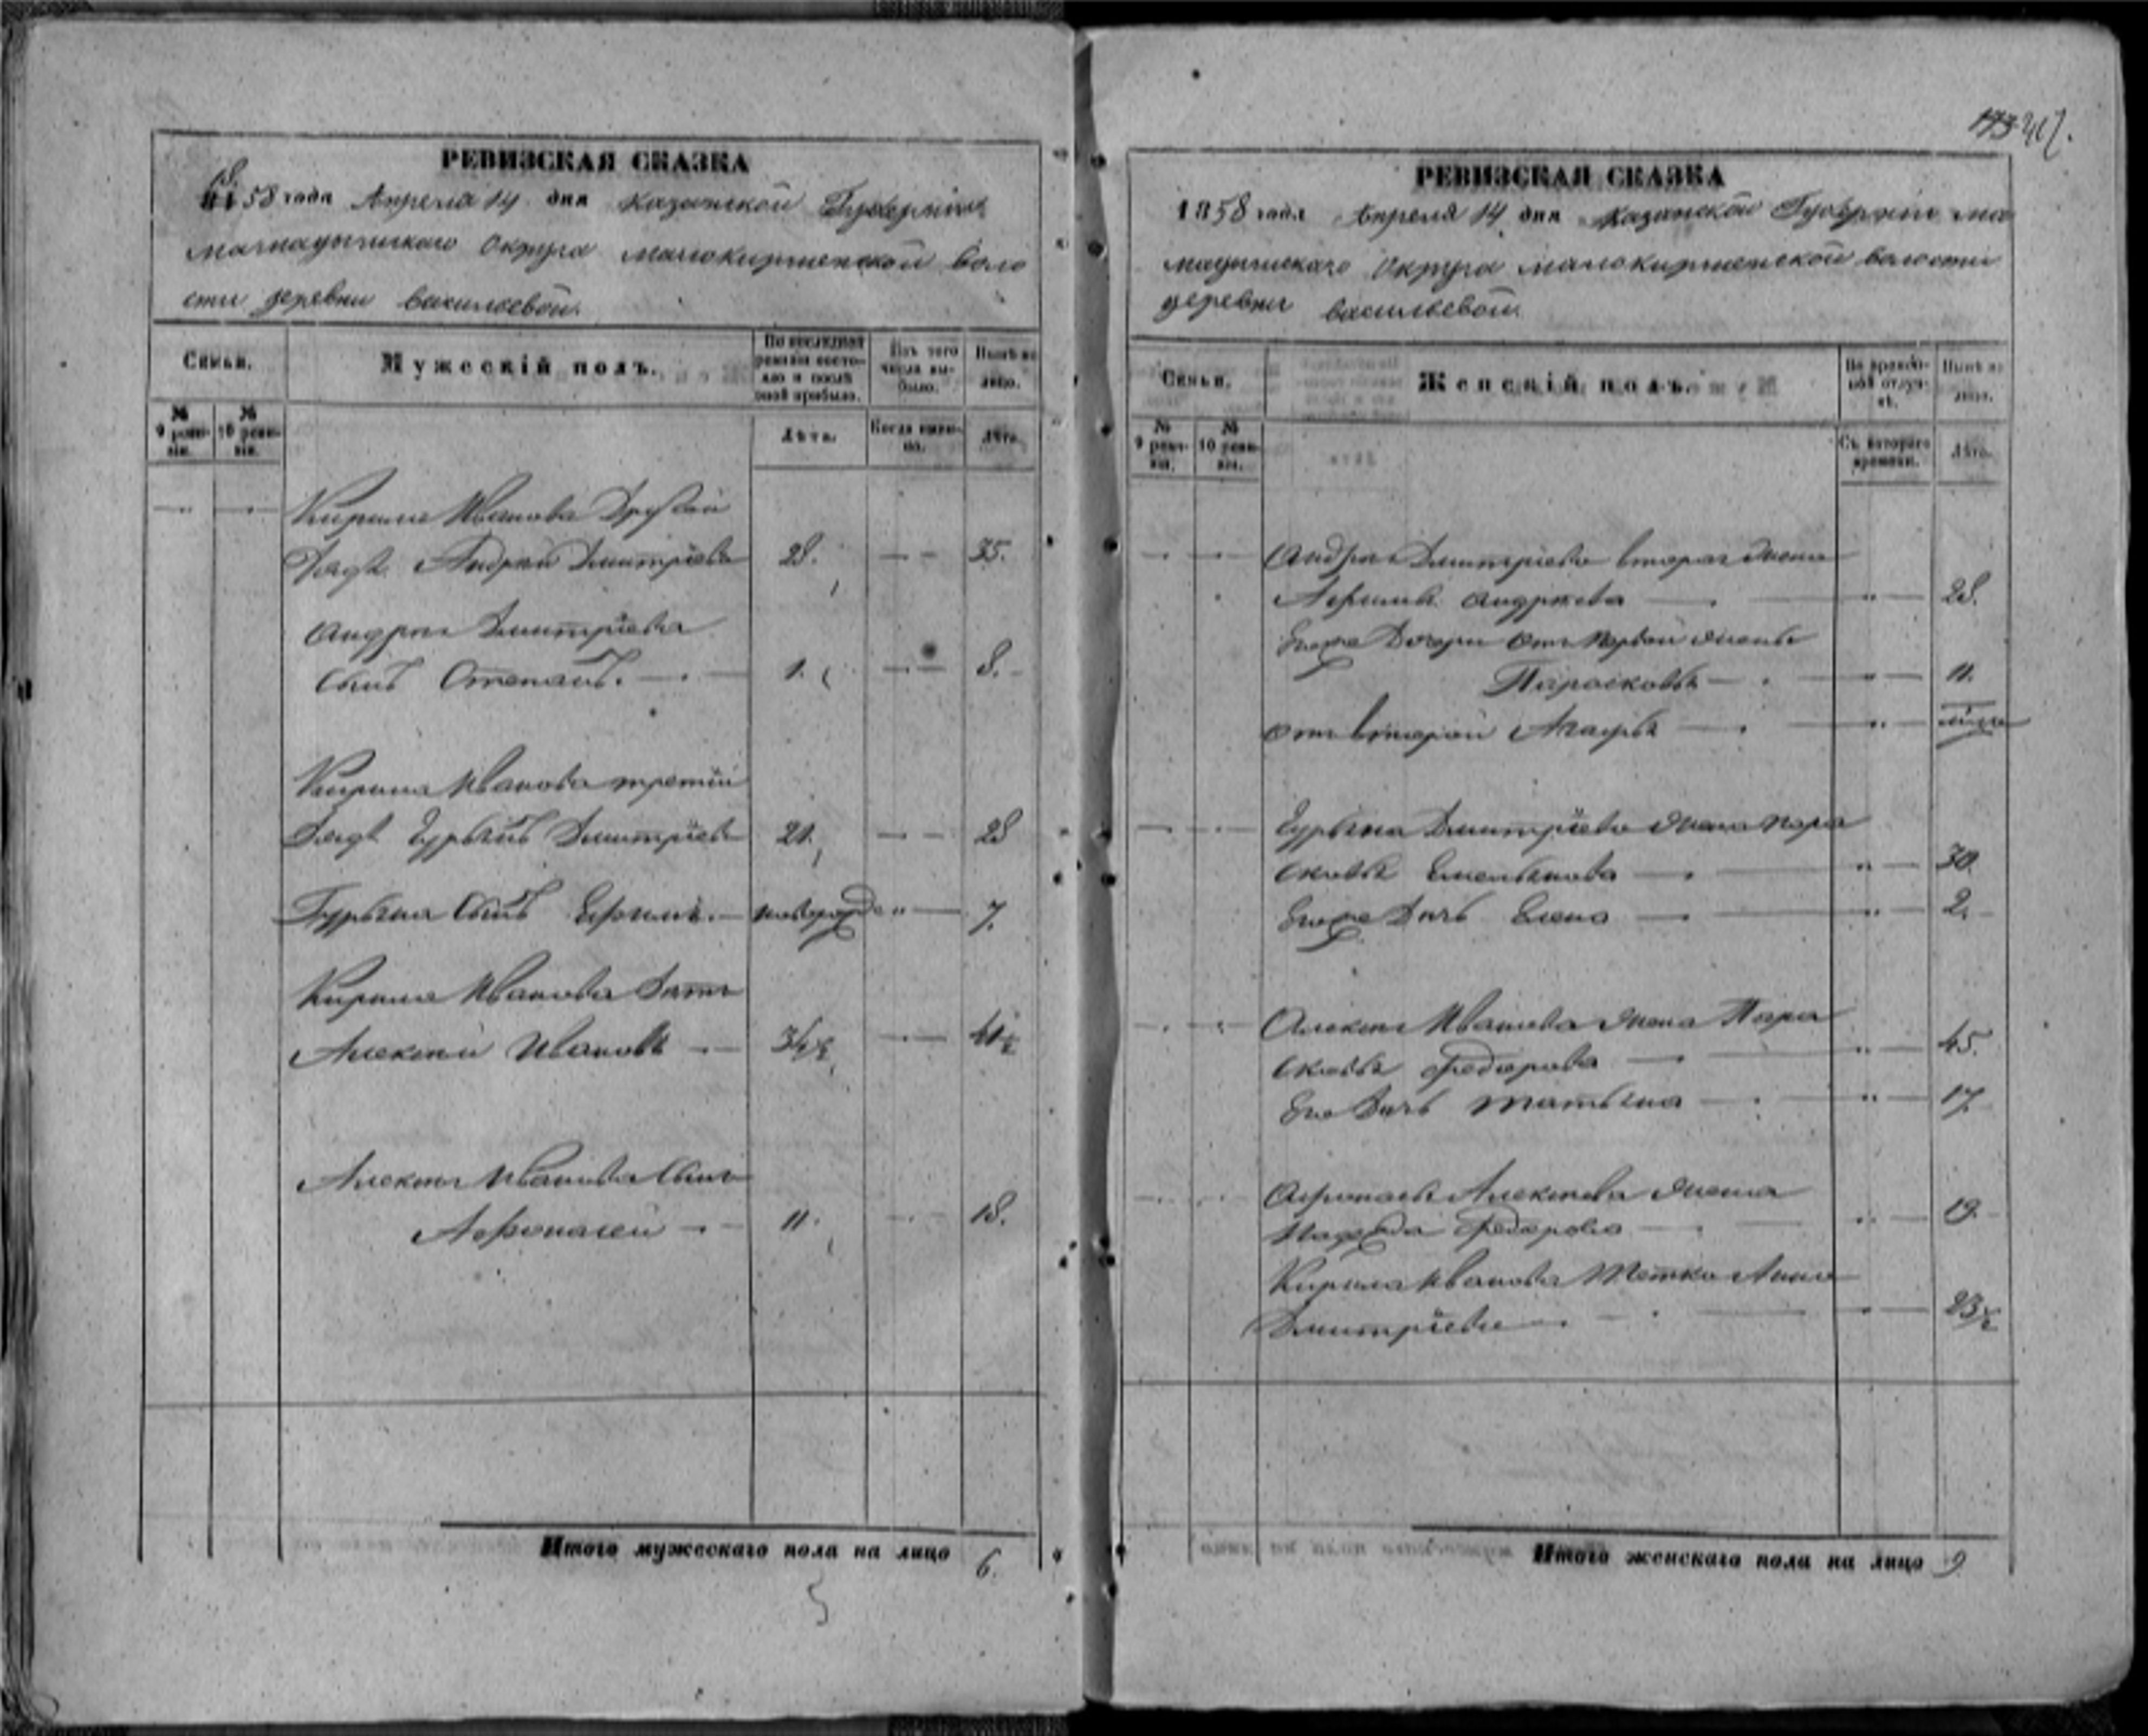 РЕВИЗСКАЯ СКАЗКА
1858 года Апреля 14 дня Казанской Губернии
мамадышскаго Округа малокирменской воло
сти деревни васильевой.
Семьи.
Мужескій полъ.
По послѣдней ревизіи состояло и послѣ оной прибыло.
Изъ того числа выбыло.
Нынѣ на лицо.
№ 9 ревизіи.
№ 10 ревизіи.
Лѣта.
Когда имянно.
Лѣта.
Кирила Иванова Другой
Дядя Андрей Дмитріевъ 28. 35.
Андрея Дмитріева
Сынъ Степанъ. 1. 8.
Кирила Иванова третій
Дядя Гурьянъ Дмитріевъ 21. 28
Гурьяна Сынъ Ефимъ. новорожд 7.
Кирила Иванова Дятя
Алексей Ивановъ 34½ 41½
Алексея Иванова Сынъ
Афонасей 11. 18.
Итого мужескаго пола на лицо 6.
5
173 417.
РЕВИЗСКАЯ СКАЗКА
1858 года Апреля 14 дня Казанской Губерніи ма
мадышскаго Округа малокирменской волости
деревни васильевой.
Семьи.
Женскій полъ.
Во временной отлучкѣ.
Нынѣ на лицо.
№ 9 ревизіи.
№ 10 ревизіи.
Съ котораго времени.
Лѣта.
Андрея Дмитріева вторая жена
Акулина Андреева 28.
Егоже Дочери от первой жены
Парасковья 11.
от второй Агафья
Гурьяна Дмитріева жена пара
сковья Емельянова 30.
Егоже Дочь Елена 2.
Алексея Иванова жена Пара
сковья Федорова 45.
Его Дочь татьяна 17.
Афонасья Алексеева жена
Надежда Федорова 19.
Кирила Иванова тетка Анна
Дмитріева 23½
Итого женскаго пола на лицо 9